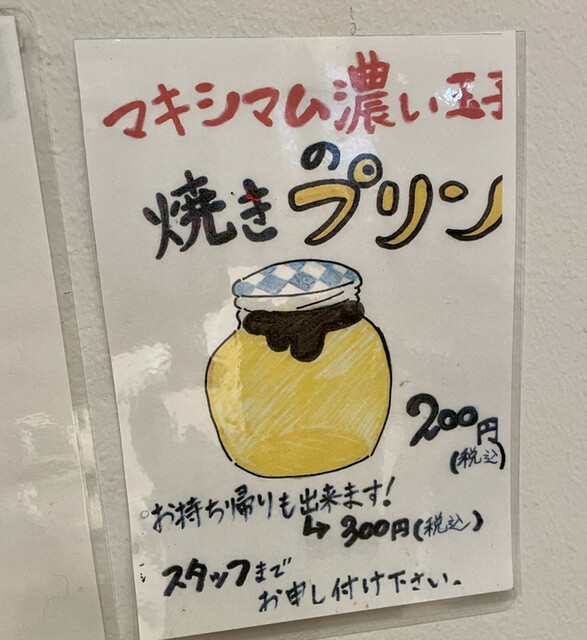 マキシマム濃い玉子
の
焼きプリン
200円
(税込)
お持ち帰りも出来ます!
↳300円(税込)
スタッフまで
お申し付け下さい。